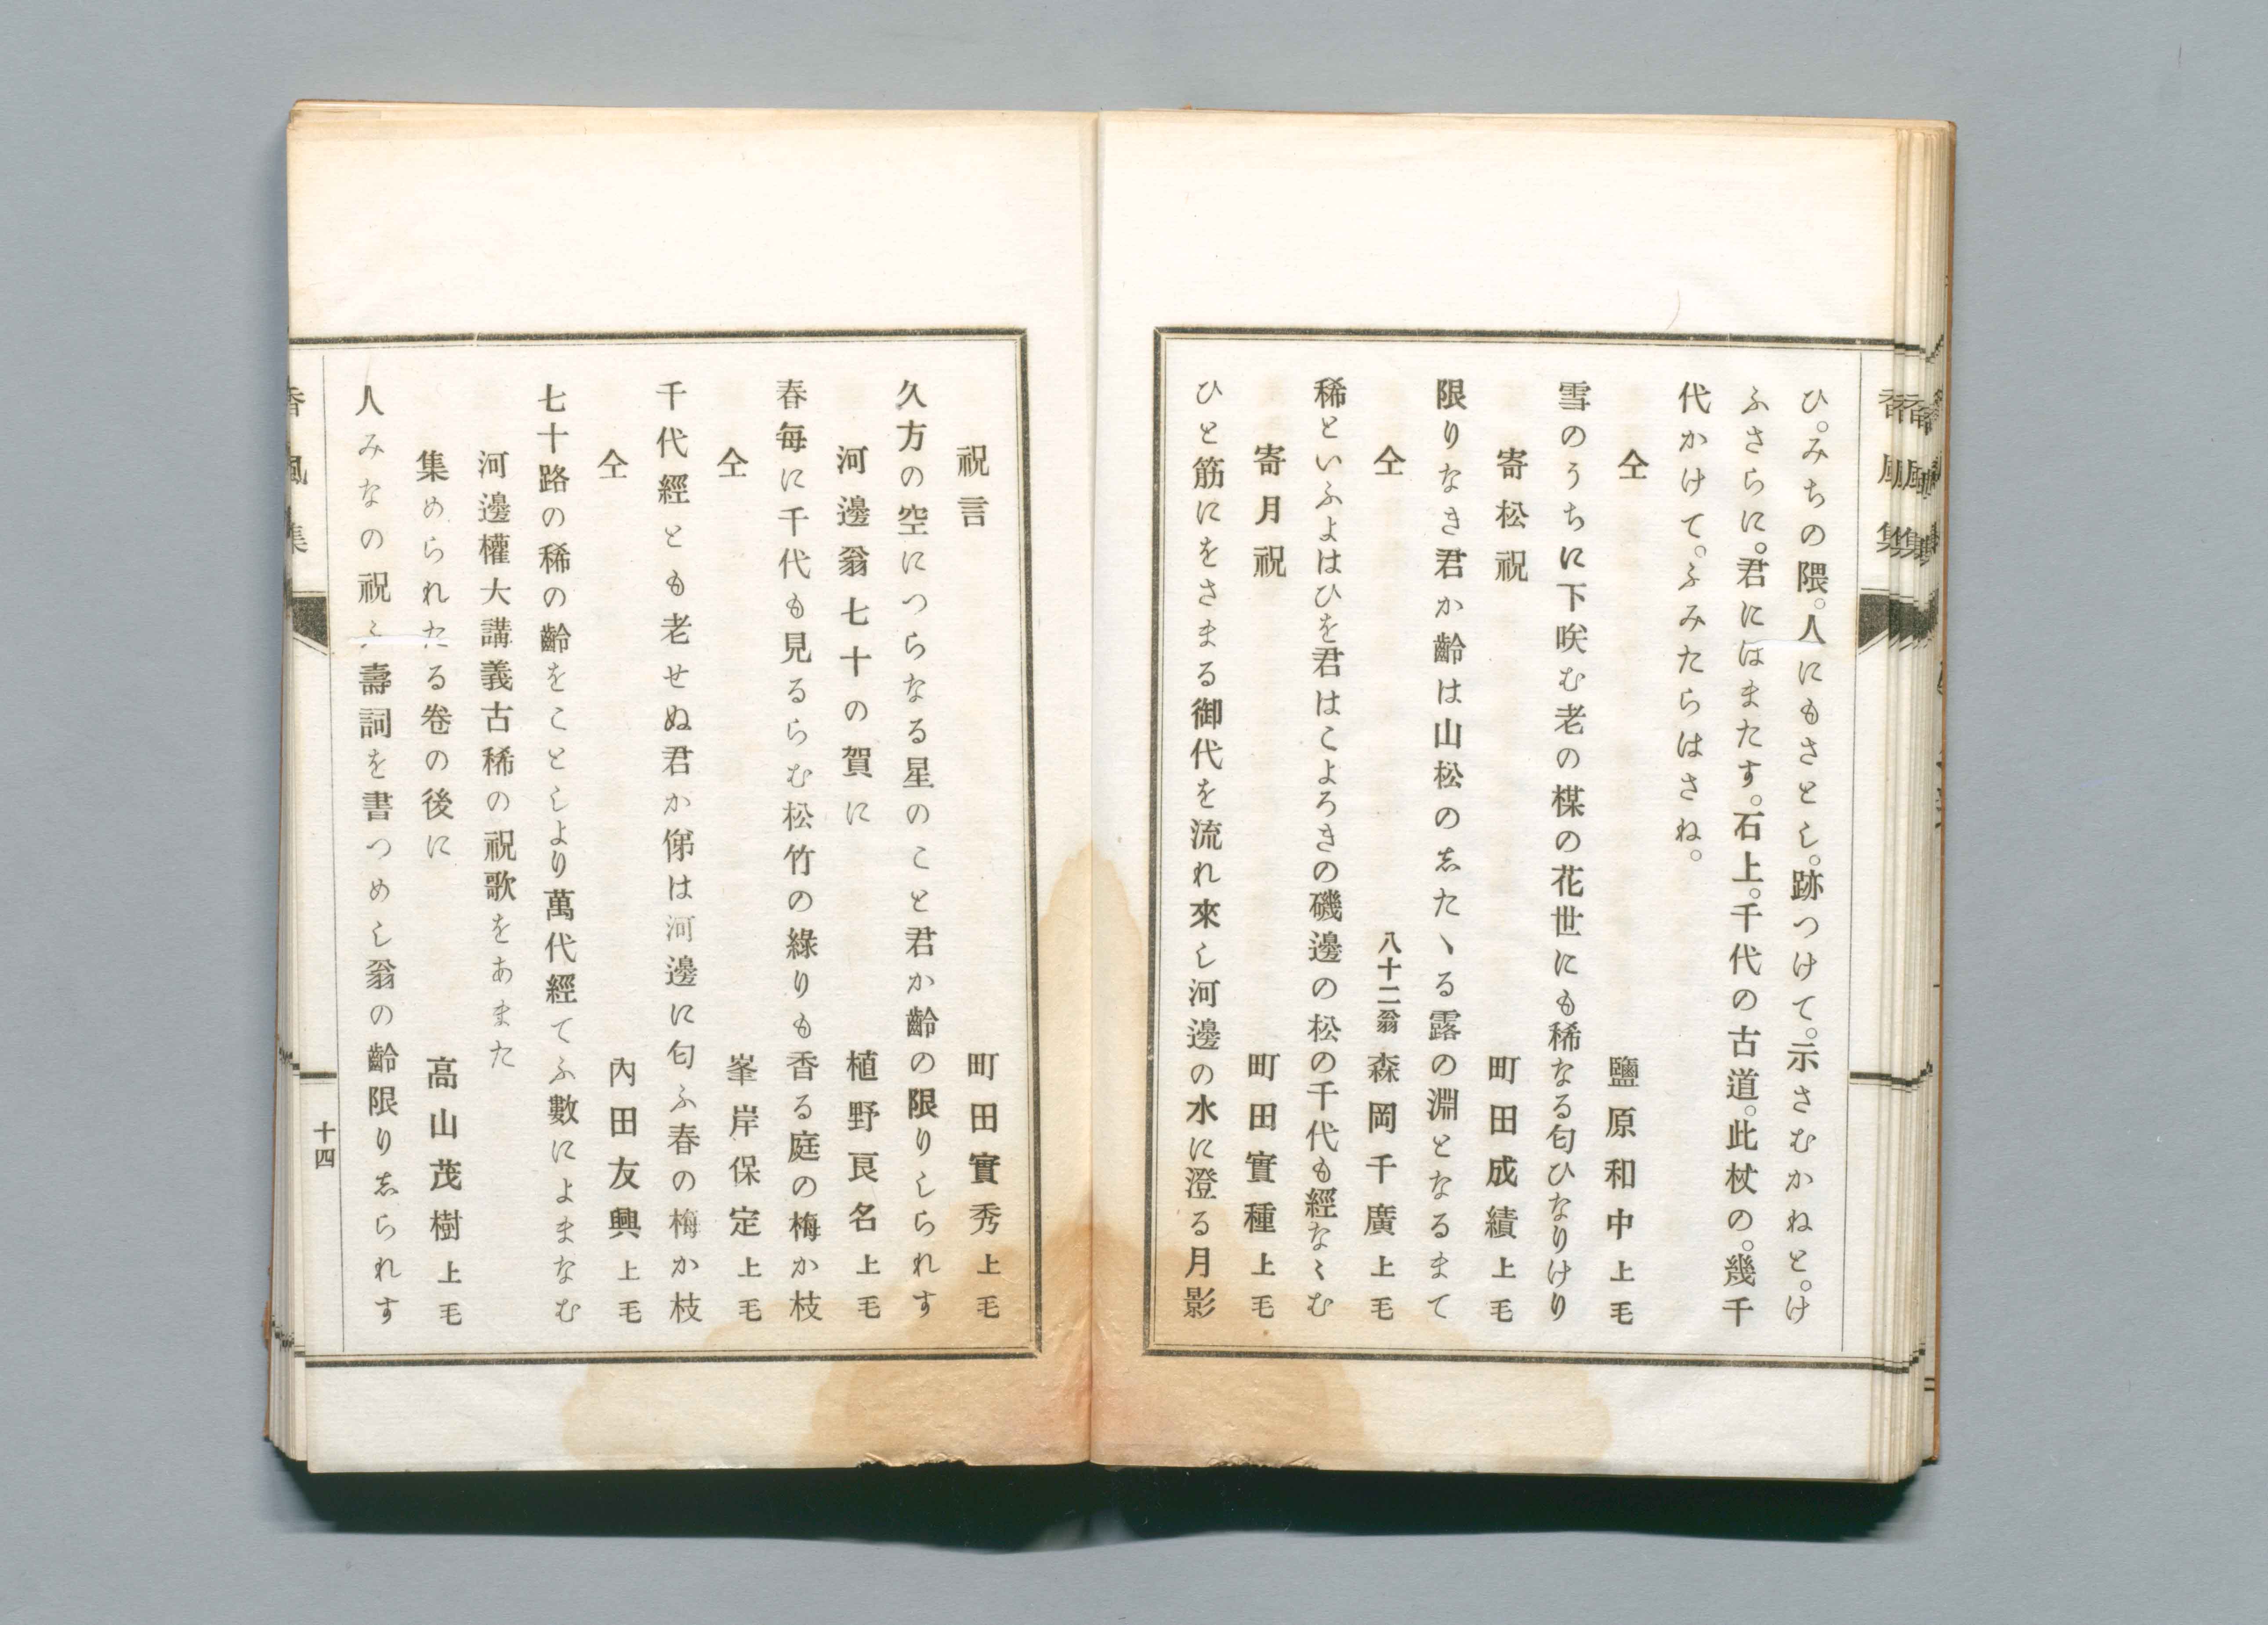 ひ。みちの隈。人にもさとし。跡つけて。示さむかねと。け
ふさらに。君にはまたす。石上。千代の古道。此杖の。幾千
代かけて。ふみたらはさね。
仝　鹽原和中上毛
雪のうちに下咲む老の楳の花世にも稀なる匂ひなりけり
寄松祝　町田成績上毛
限りなき君か齡は山松の志たゝる露の淵となるまて
仝　八十二翁森岡千廣上毛
稀といふよはひを君はこよろきの磯邊の松の千代も經なゝむ
寄月祝　町田實種上毛
ひと筋にをさまる御代を流れ來し河邊の水に澄る月影
祝言　町田實秀上毛
久方の空につらなる星のこと君か齡の限りしられす
河邊翁七十の賀に　植野良名上毛
春每に千代も見るらむ松竹の綠りも香る庭の梅か枝
仝　峯岸保定上毛
千代經とも老せぬ君か俤は河邊に匂ふ春の梅か枝
仝　內田友興上毛
七十路の稀の齡をことしより萬代經てふ數によまなむ
河邊權大講義古稀の祝歌をあまた
集められたる卷の後に　高山茂樹上毛
人みなの祝ふ壽詞を書つめし翁の齡限り志られす
香風集
十四